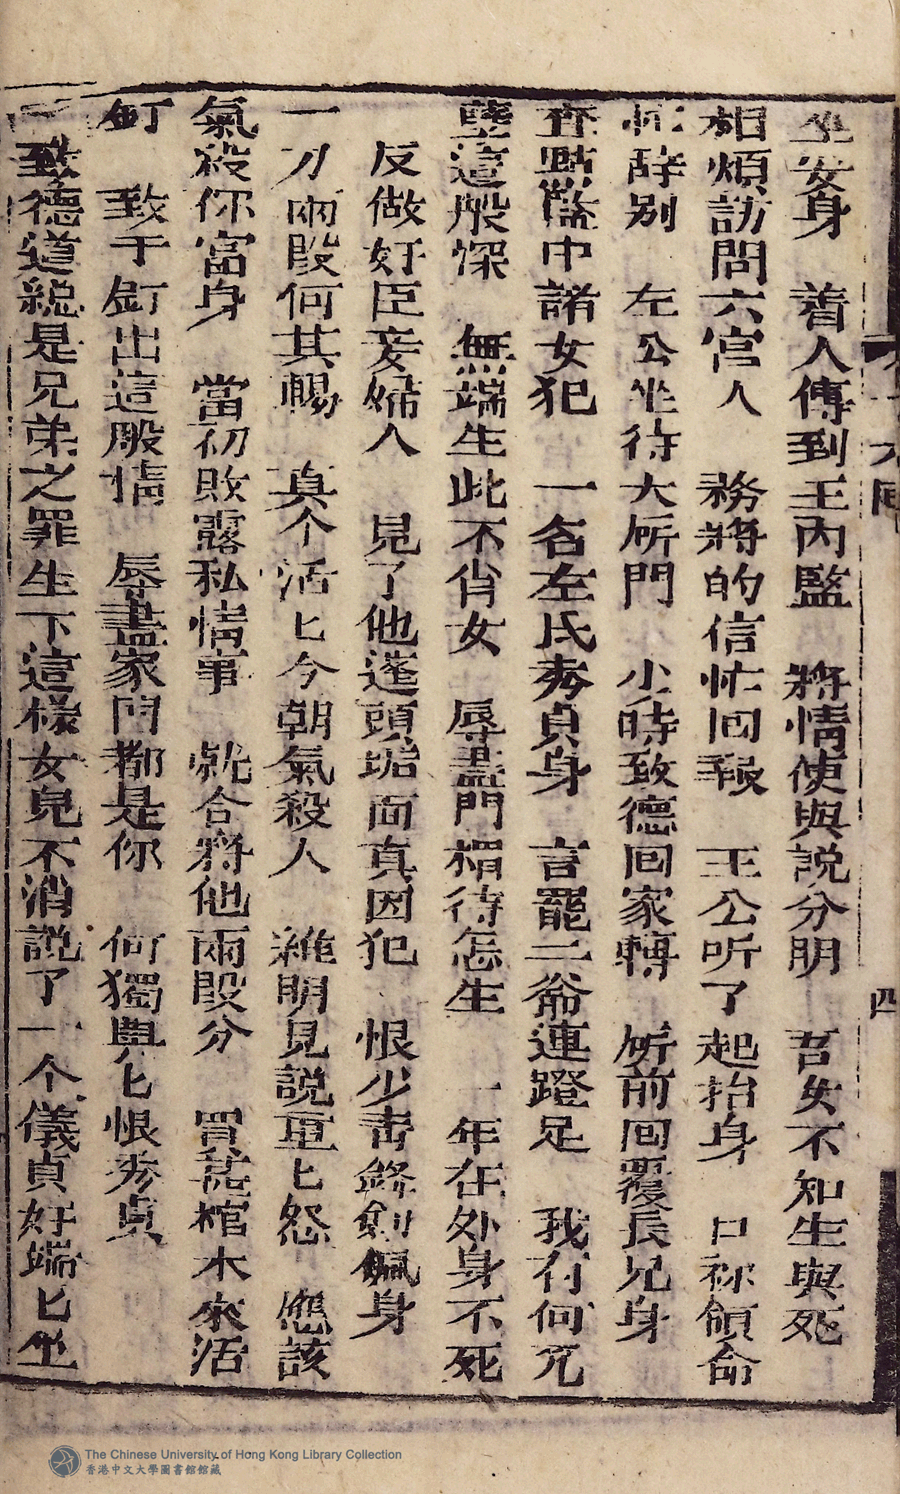 坐安身　着人傳到王內監　將情使與說分明　吾女不知生與死
相煩訪問六官人　務將的信忙回報　王公听了起抬身　口称領命
忙辞别　左公坐待大所門　少時致德回家轉　所前回覆長兄身
查點監中諸女犯　一名左氏秀貞身　言罷二爺連蹬足　我有何冤
孽這般深　無端生此不肖女　辱盡門楣待怎生　一年在外身不死
反做奸臣妾婦人　見了他蓬頭垢面真因犯　恨少青鋒劍佩身
一刀兩段何其賜　真个活匕今朝氣殺人　維明見說重匕怒　應該
氣殺你富身　當初敗露私情事　就合將他兩段分　買甚棺木來活
釘　致于釘出這般情　辱盡家門都是你　何獨與匕恨秀貞
致德道総是兄弟之罪生下這樣女兒不消説了一个儀貞好端匕坐
四
The Chinese University of Hong Kong Library Collection
香港中文大學圖書館館藏